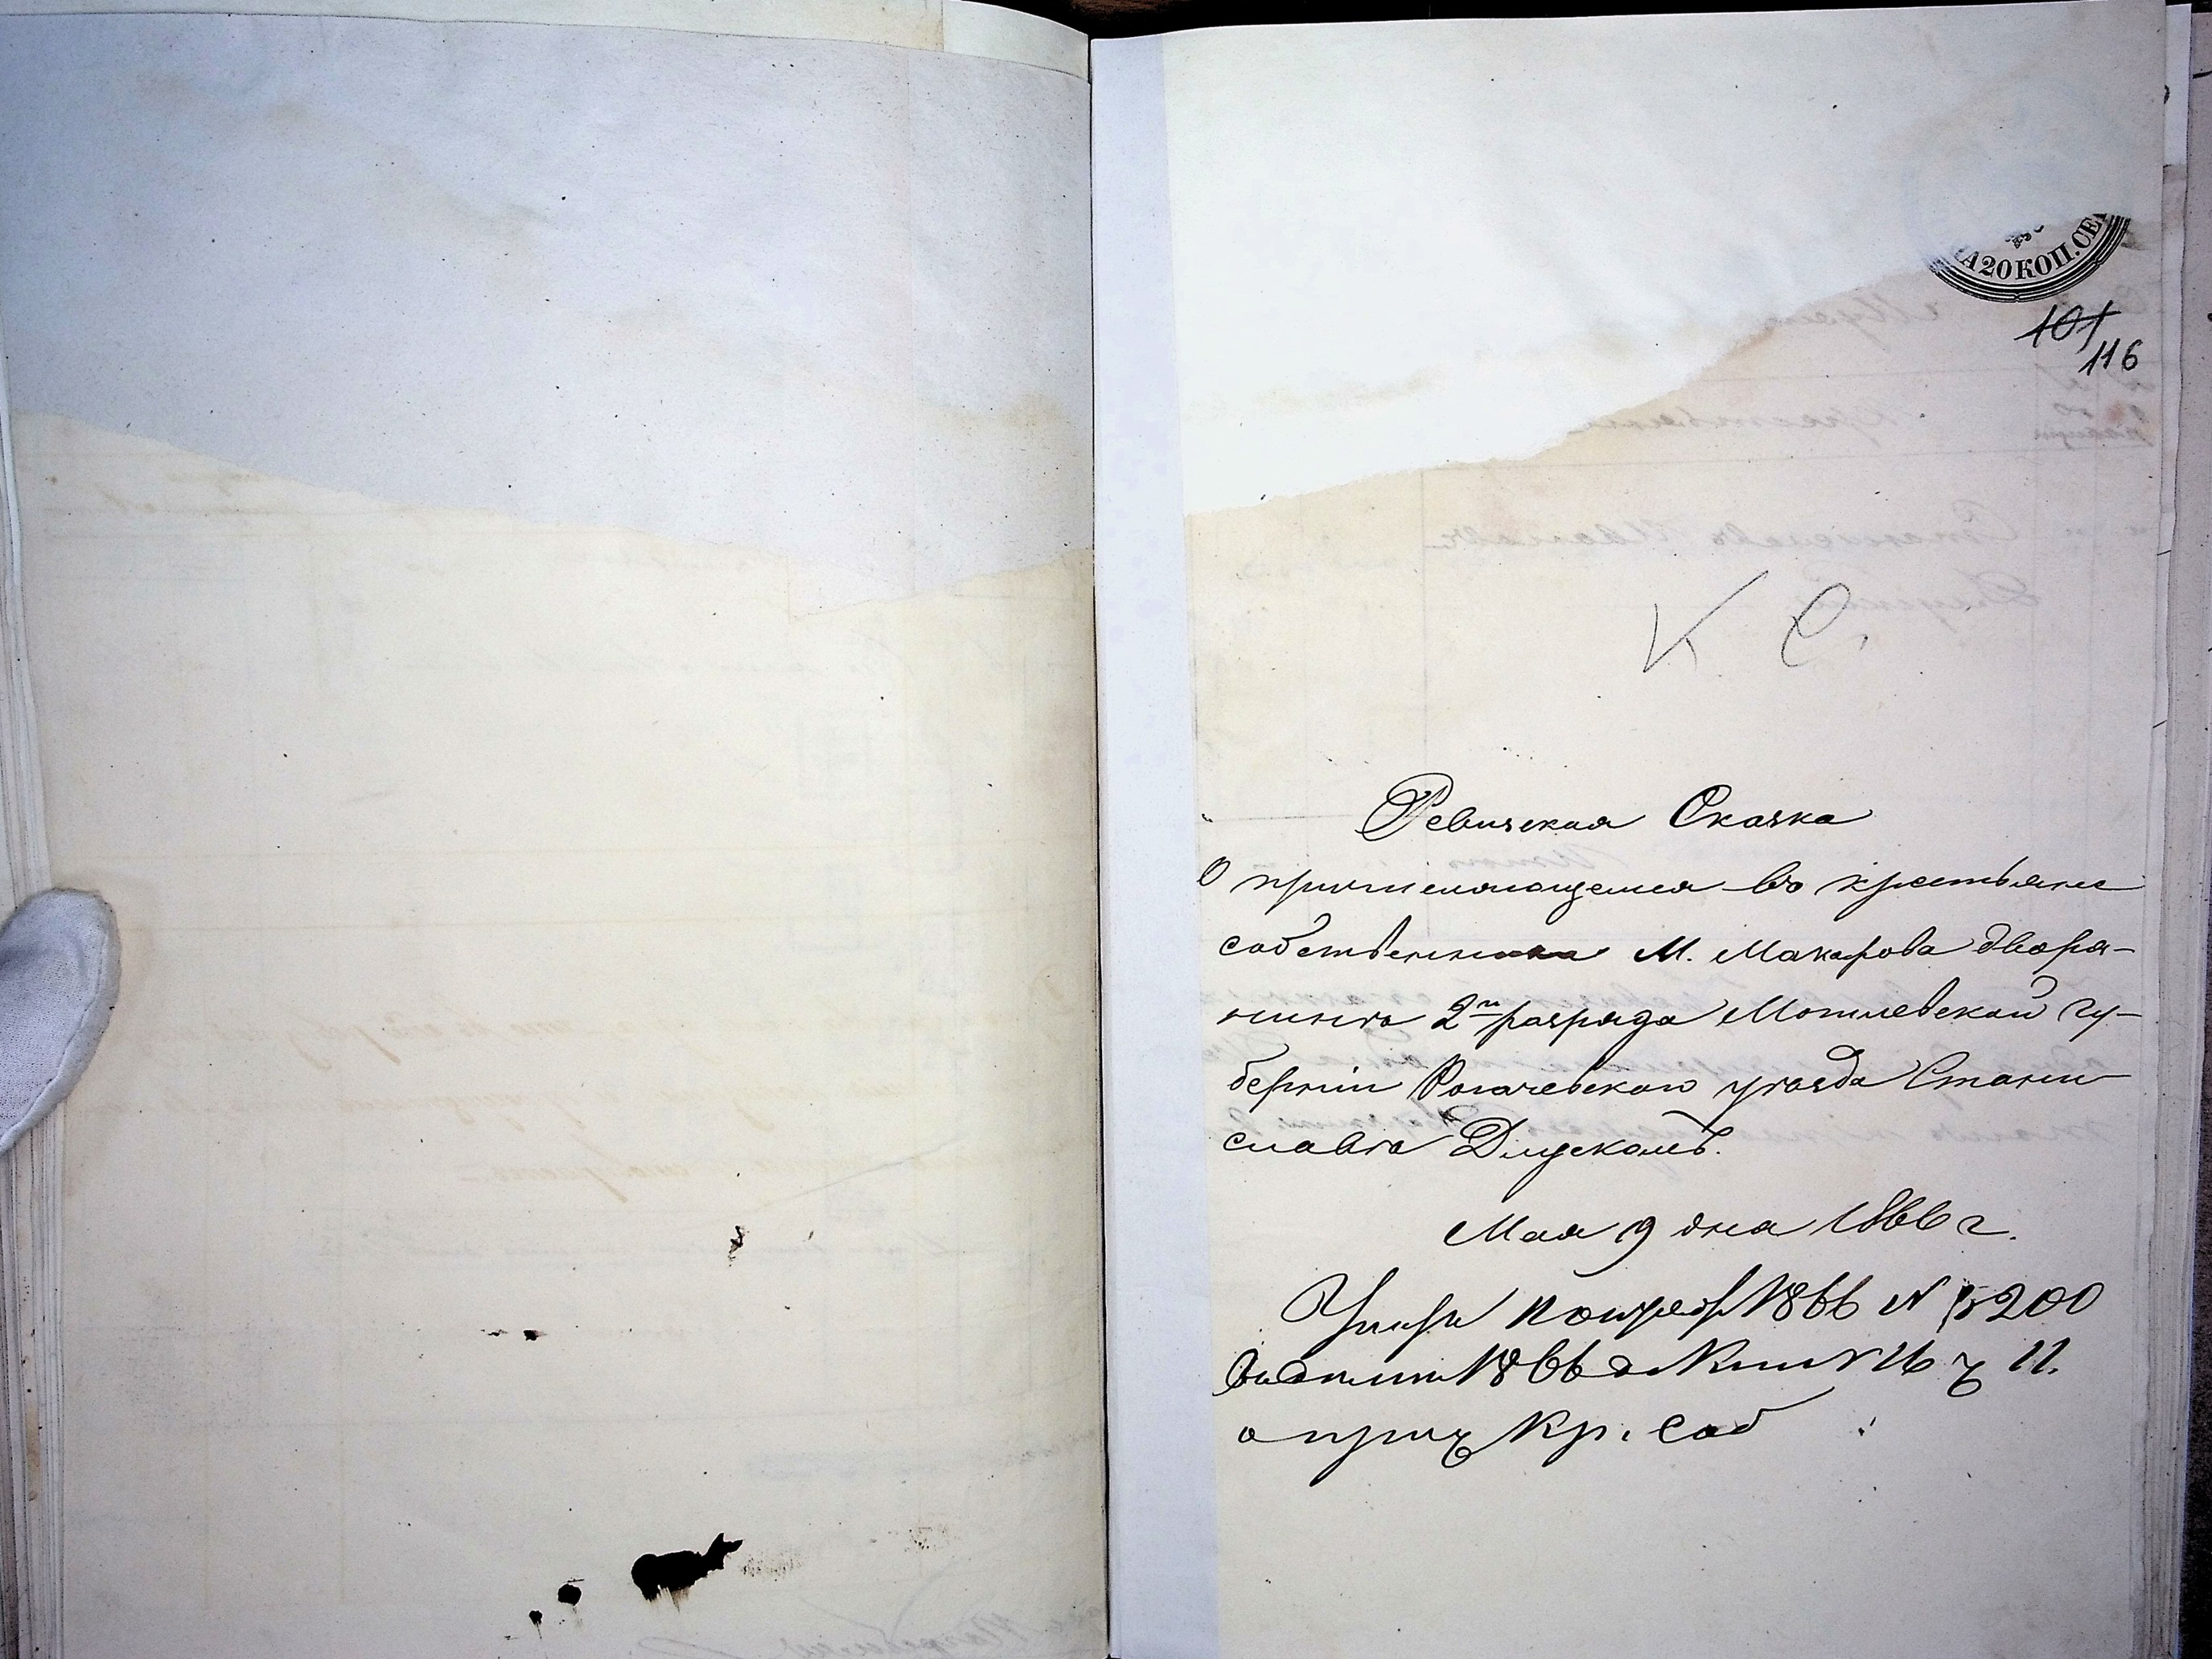 А 20 КОП. СЕ
101
116
К С.
Ревизская Сказка
О причисляющемся въ крестьяне
собственники М. Макарова дворя-
нинѣ 2го разряда Могилевской гу-
берніи Рогачевскаго уѣзда Стани-
славѣ Длускомъ.
Мая 9 дня 1866 г.
1866 № 5200
1866 16 ч 11.
о прич Кр. Соб